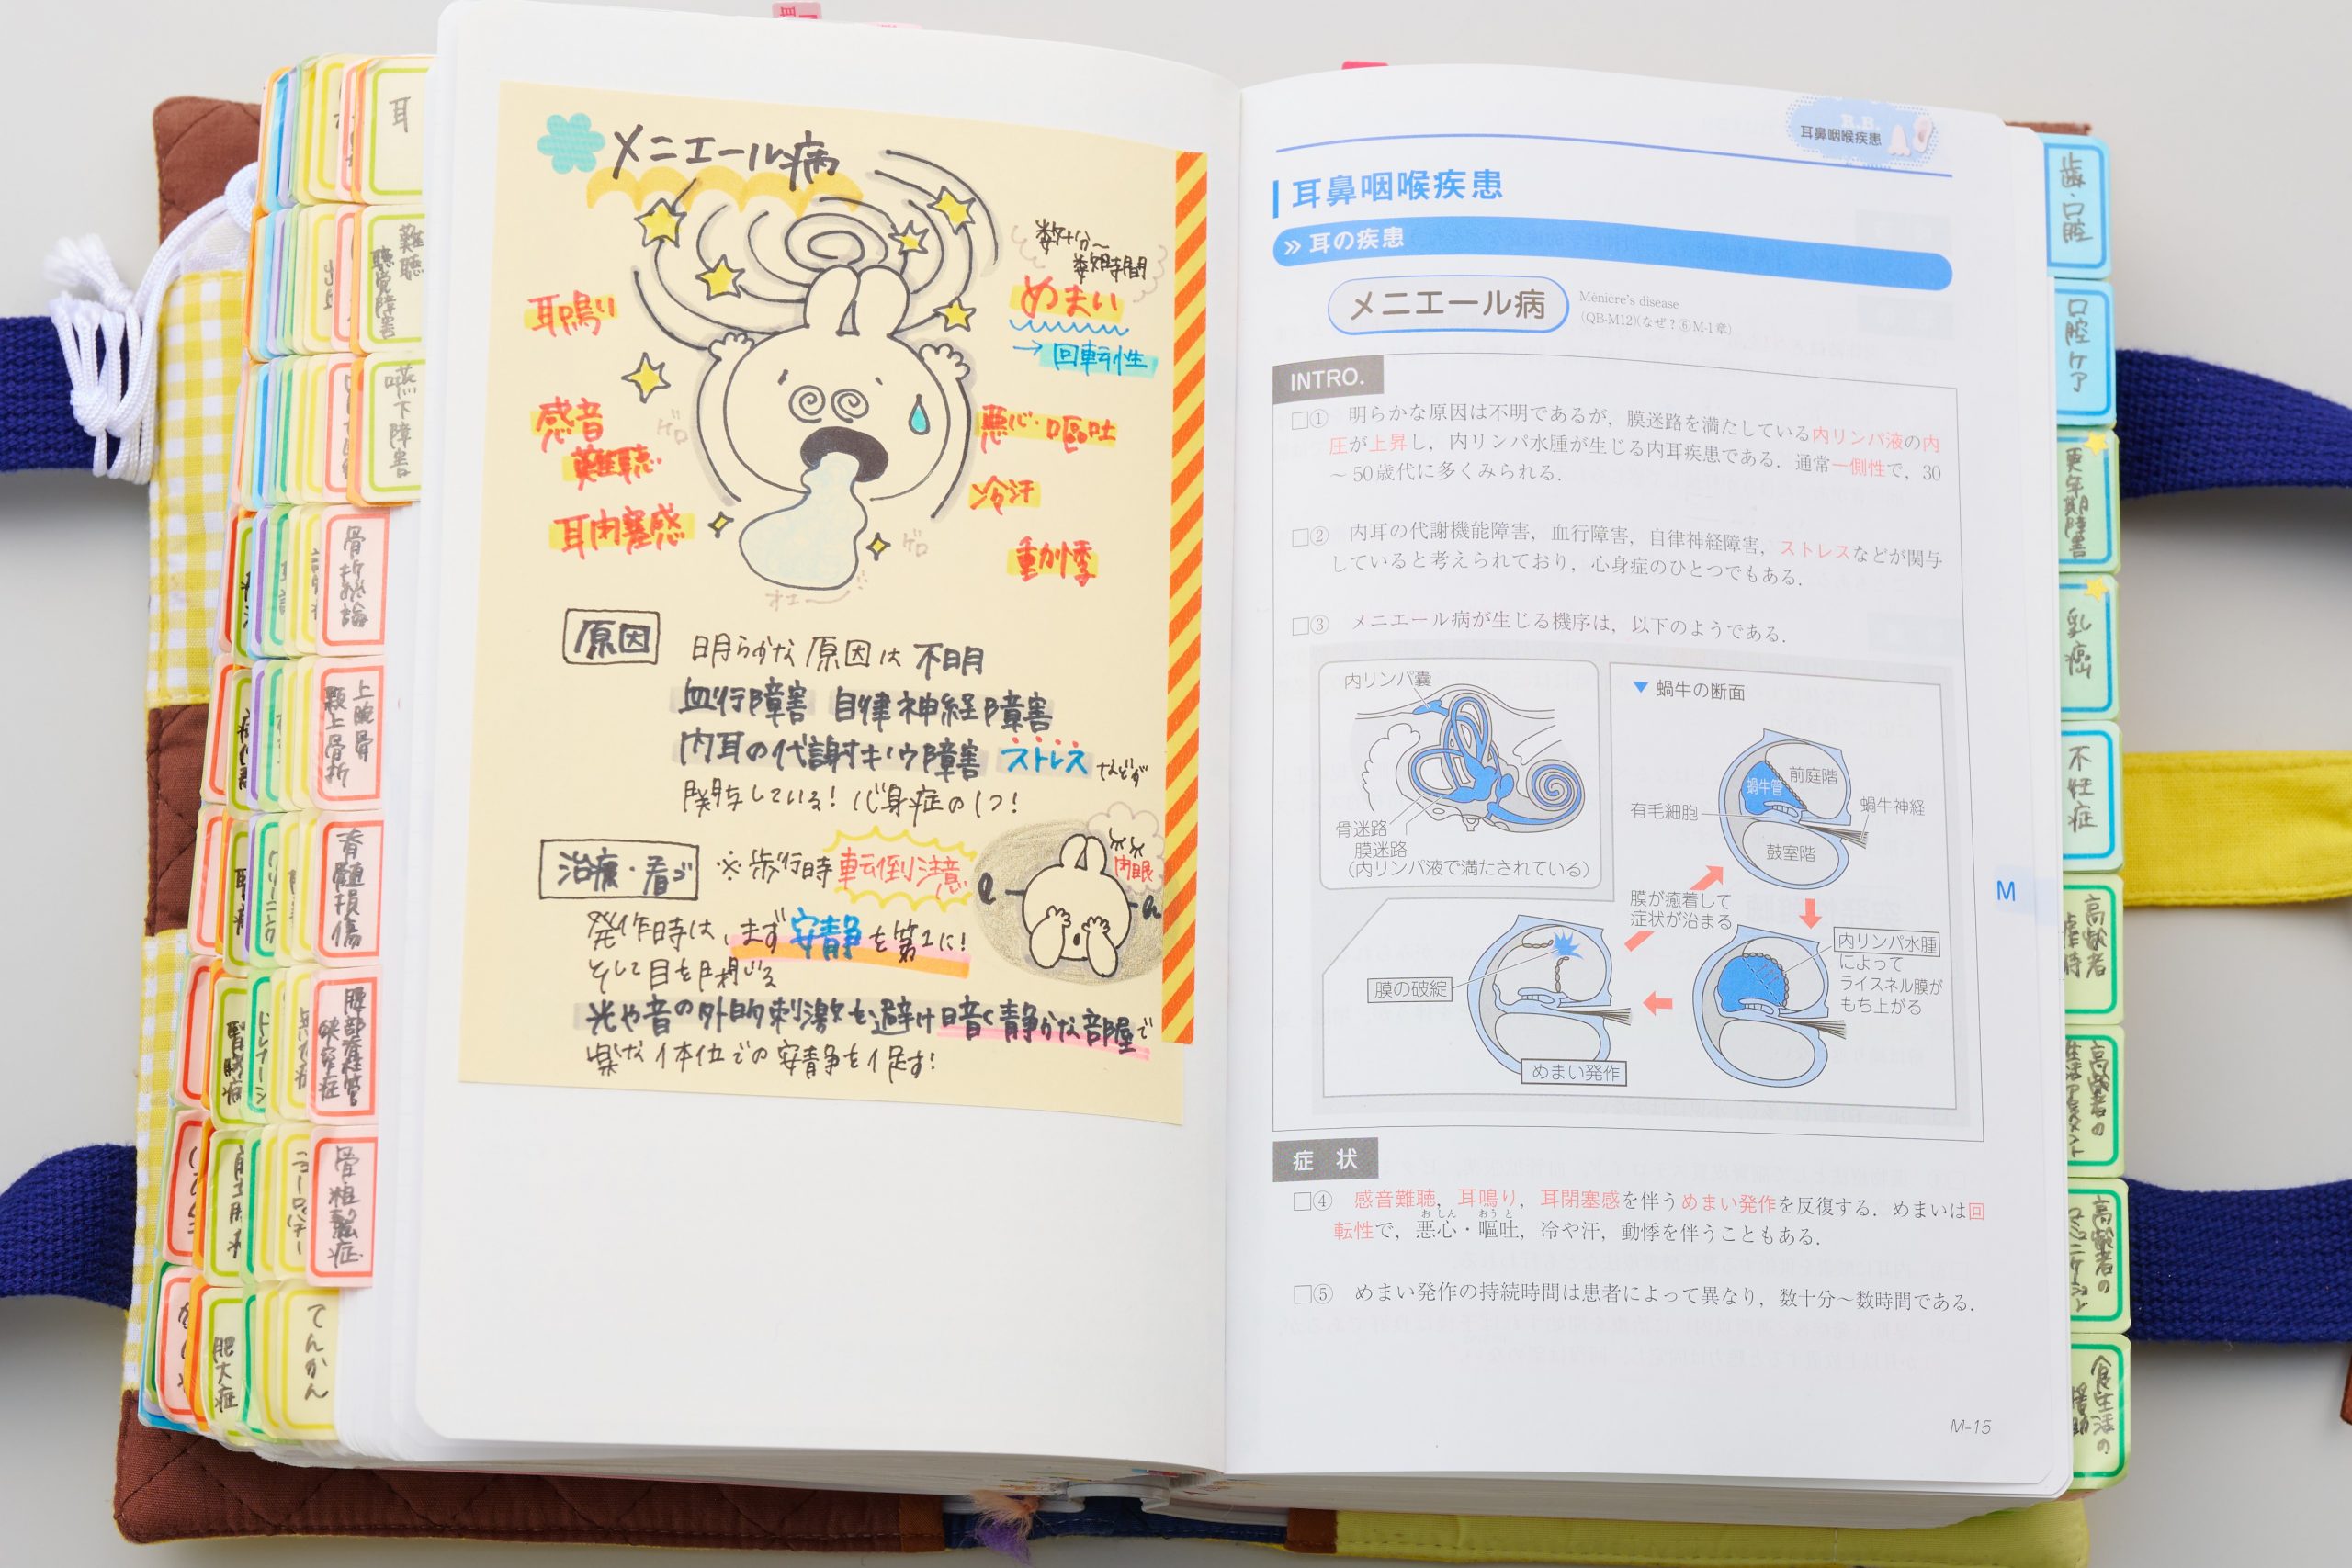 メニエール病
数十分〜
数時間
めまい
→回転性
耳鳴り
感音
難聴
耳閉塞感
悪心・嘔吐
冷汗
動悸
ゲロ
ゲロ
オエ〜
原因
明らかな原因は不明
血行障害 自律神経障害
内耳の代謝キノウ障害 ストレスなどが
関与している! 心身症の1つ!
治療・看ゴ
※歩行時転倒注意
閉眼
発作時は、まず安静を第1に!
そして目を閉じる
光や音の外的刺激を避け暗く静かな部屋で
楽な体位での安静を促す!
R.B.
耳鼻咽喉疾患
耳鼻咽喉疾患
≫ 耳の疾患
メニエール病
Ménière's disease
(QB-M12)(なぜ?⑥M-1章)
INTRO.
□① 明らかな原因は不明であるが，膜迷路を満たしている内リンパ液の内
圧が上昇し，内リンパ水腫が生じる内耳疾患である．通常一側性で，30
〜50歳代に多くみられる．
□② 内耳の代謝機能障害，血行障害，自律神経障害，ストレスなどが関与
していると考えられており，心身症のひとつでもある．
□③ メニエール病が生じる機序は，以下のようである．
内リンパ嚢
骨迷路
膜迷路
(内リンパ液で満たされている)
▼ 蝸牛の断面
前庭階
蝸牛管
有毛細胞
蝸牛神経
鼓室階
膜が癒着して
症状が治まる
内リンパ水腫
によって
ライスネル膜が
もち上がる
膜の破綻
めまい発作
症 状
□④ 感音難聴，耳鳴り，耳閉塞感を伴うめまい発作を反復する．めまいは回
おしん おうと
転性で，悪心・嘔吐，冷や汗，動悸を伴うこともある．
□⑤ めまい発作の持続時間は患者によって異なり，数十分〜数時間である．
M
M-15
耳
難聴
聴覚障害
嚥下障害
骨折総論
上腕骨
顆上骨折
脊髄損傷
腰部脊柱管
狭窄症
骨粗鬆症
てんかん
肥大症
歯・口腔
口腔ケア
更年期障害
乳癌
不妊症
高齢者
高齢者の
高齢者の
食生活の
援助